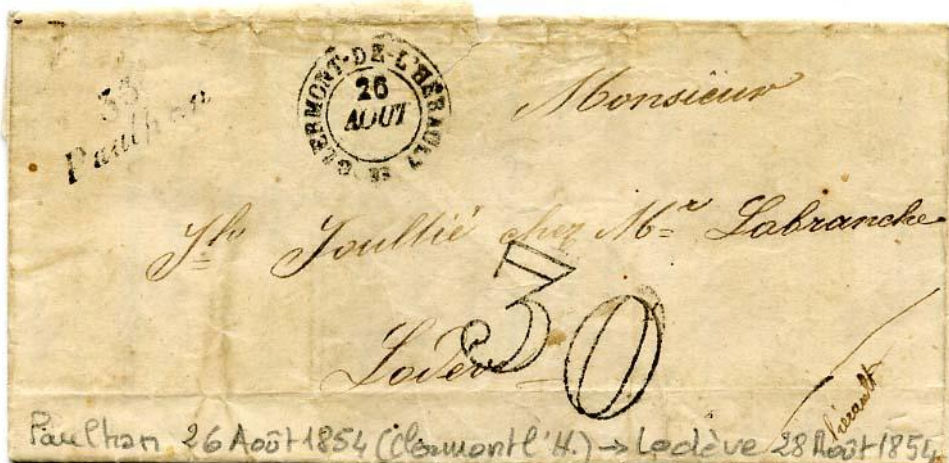 33
Paulhan
CLERMONT-DE-L'HÉRAULT
26
AOUT
Monsieur
Joullié chez Mr Labranche
Lodève
30
hérault
Paulhan 26 Août 1854 (Clermont l'H.) → Lodève 28 Août 1854